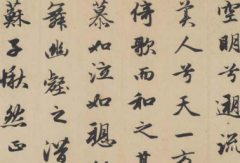 空明兮遡流
美人兮天一方
倚歌而和之其
慕如泣如愬
舞幽壑之潛
蘇子愀然正